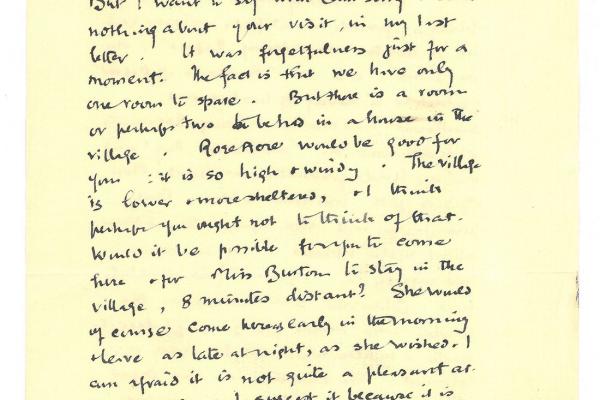 But I want to say
nothing about your visit, in my last
letter. It was forgetfulness just for a
moment. The fact is that we have only
one room to spare. But there is a room
or perhaps two to be had in a house in the
village. would be good for
you : it is so high & windy. The village
is lower & more sheltered, & I think
perhaps you ought not to think of that.
Would it be possible for you to come
here & for Miss Burton to stay in the
village, 8 minutes distant? She would
of course come here as early in the morning
& leave as late at night, as she wished. I
am afraid it is not quite a pleasant as
suggest it because it is